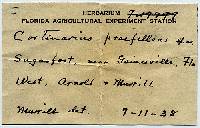 HERBARIUM
FLORIDA AGRICULTURAL EXPERIMENT STATION
Cortinarius
Sugarfoot, near Gainesville, Fla
West, Arnold & Murrill
Murrill det. 7-11-38